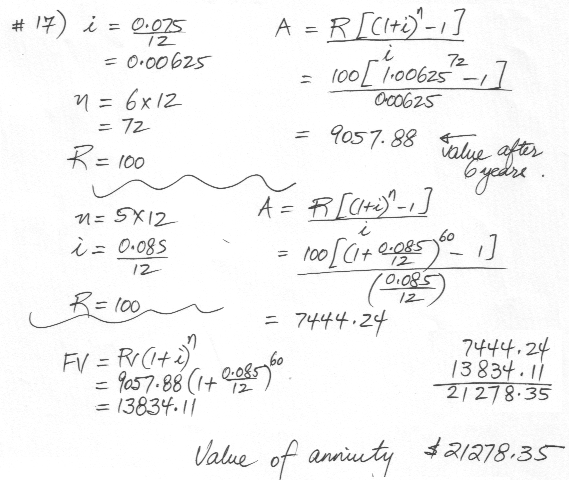 # 17) i = 0.075 / 12
= 0.00625
n = 6x12
= 72
R = 100
A = R[(1+i)^n - 1] / i
= 100[1.00625^72 - 1] / 0.00625
= 9057.88 ← value after 6 years.
n = 5x12
i = 0.085 / 12
R = 100
A = R[(1+i)^n - 1] / i
= 100[(1 + 0.085/12)^60 - 1] / (0.085/12)
= 7444.24
FV = PV(1+i)^n
= 9057.88(1 + 0.085/12)^60
= 13834.11
7444.24
13834.11
21278.35
Value of annuity $21278.35